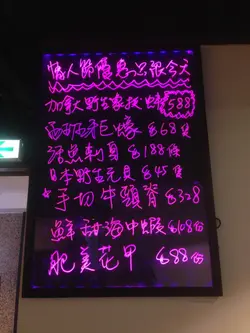 情人節優惠只限今天
加拿大野生象拔蚌 $588
西班牙巨蠔 $68隻
活魚刺身 $188條
日本野生元貝 $45隻
*手切牛頸脊 $328
鮮甜海中蝦 $108份
肥美花甲 $88份